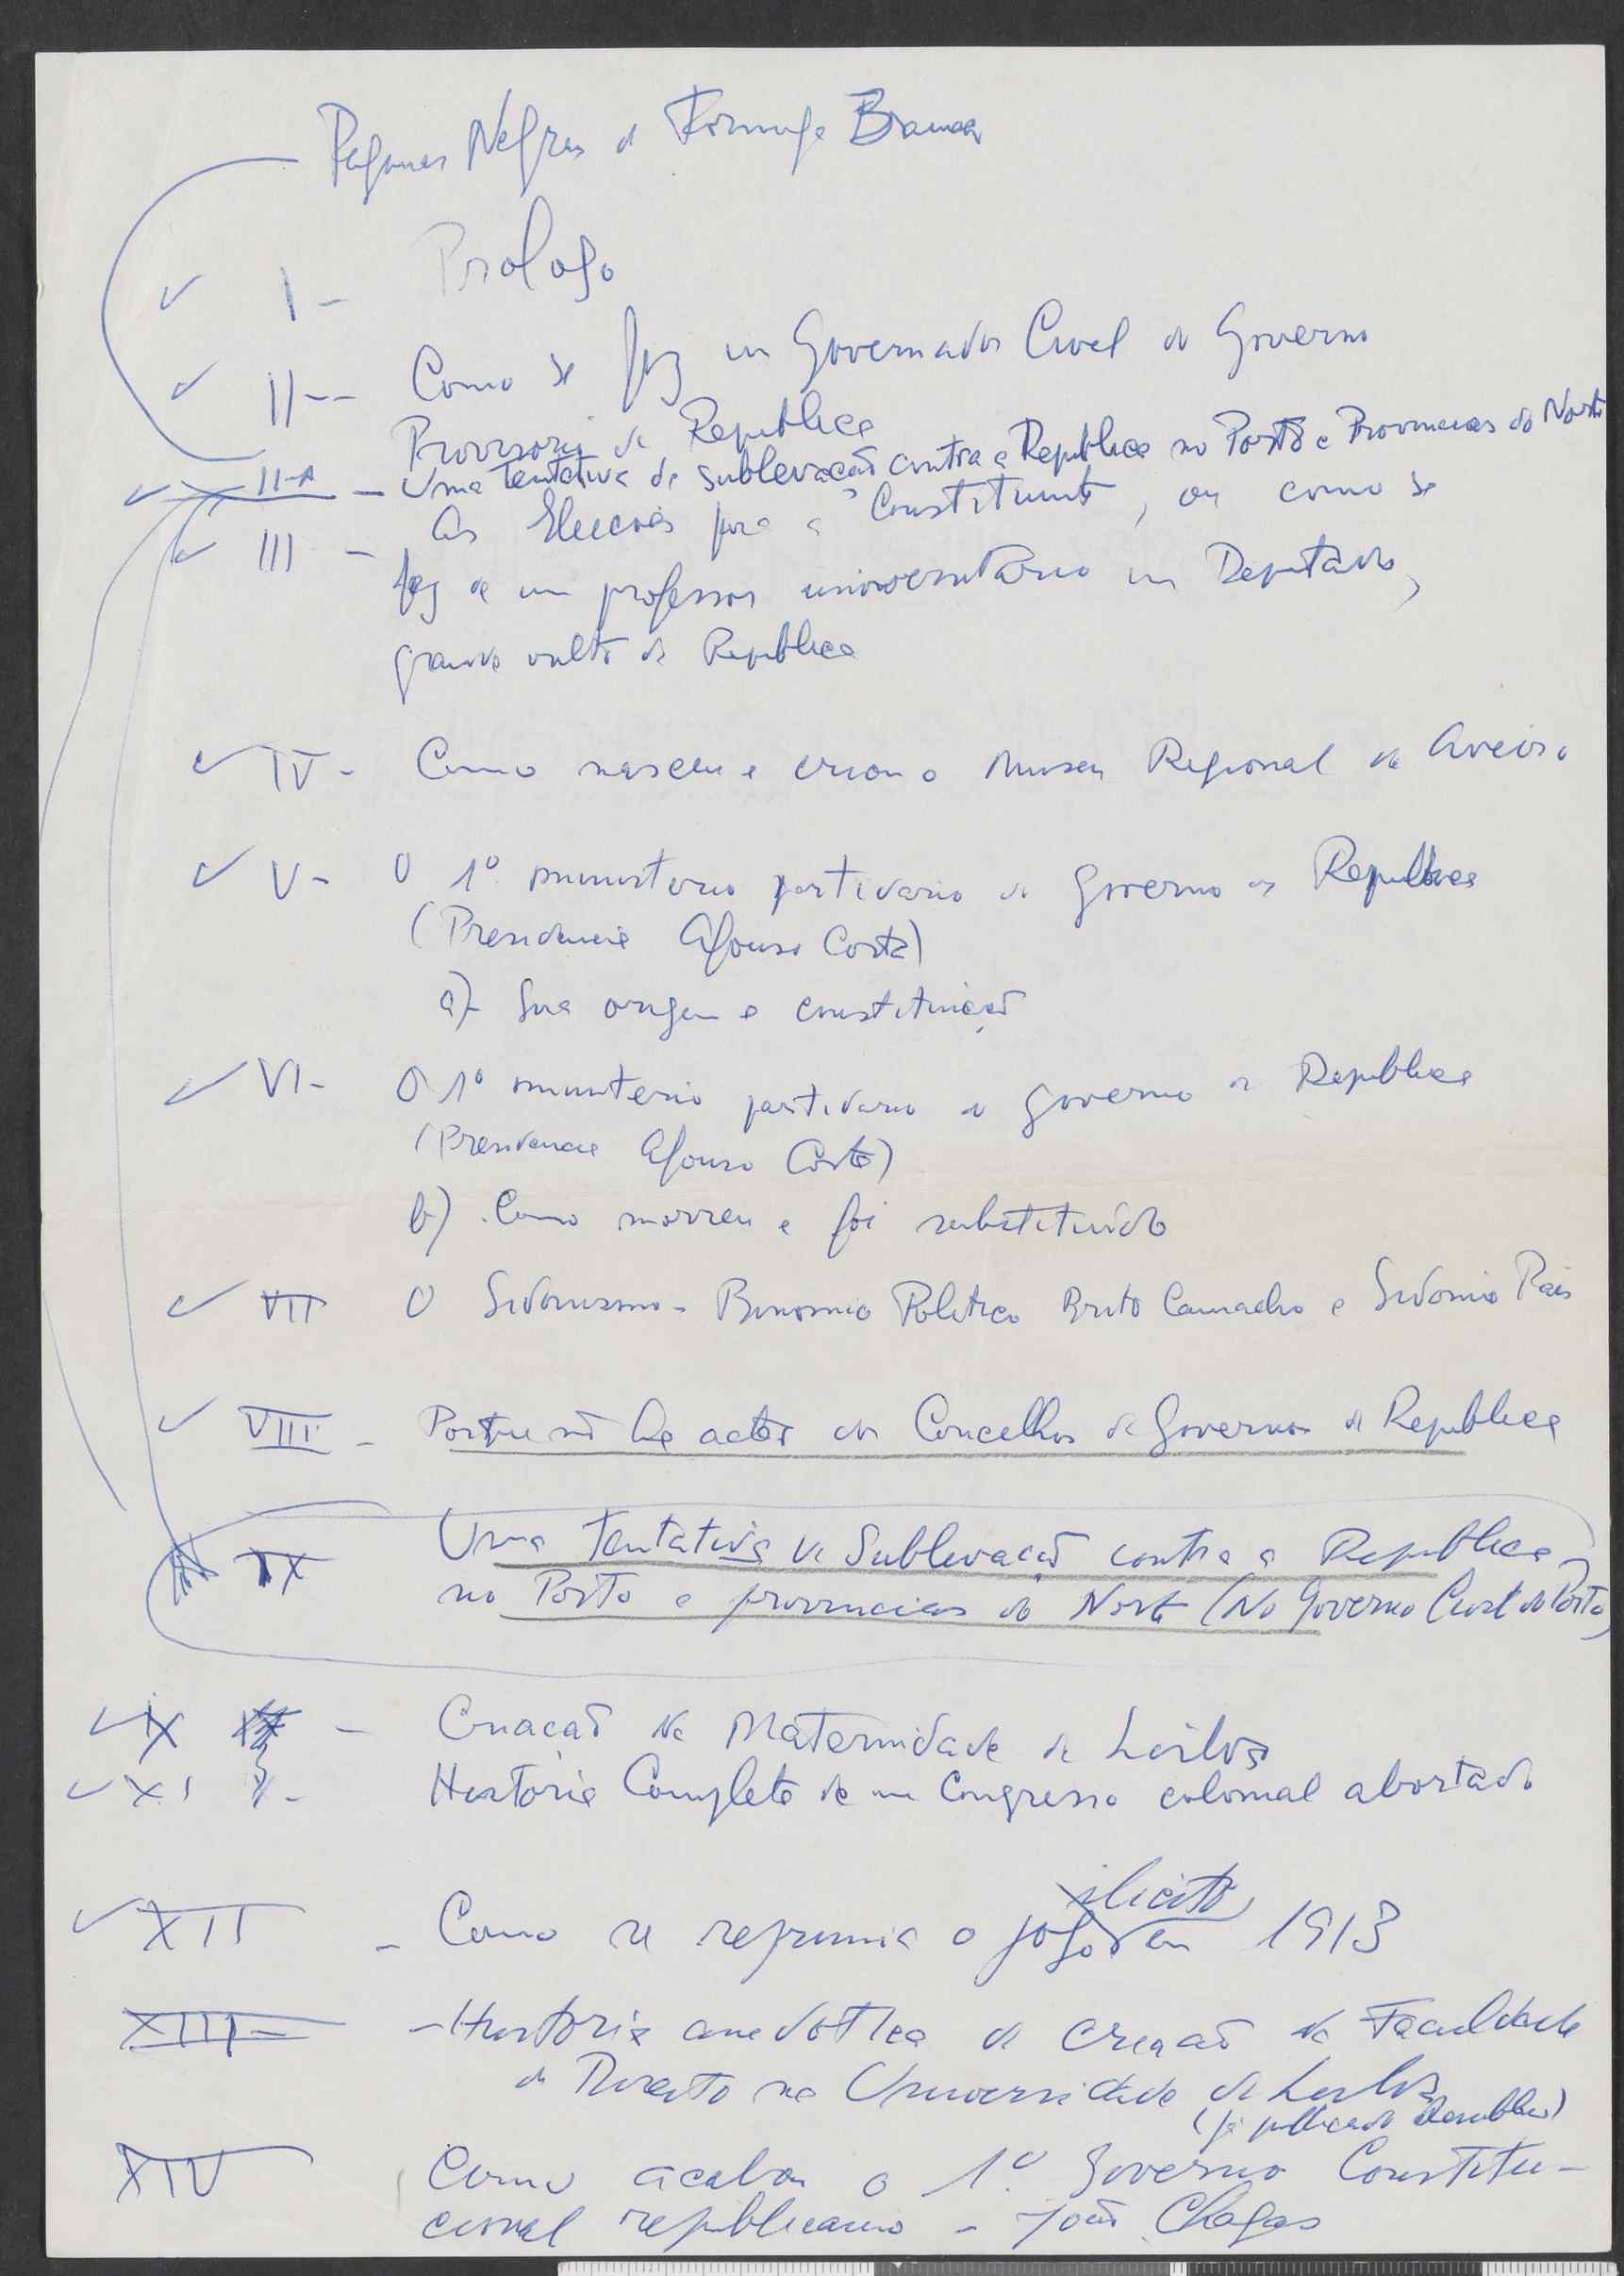 Paginas Negras de Formiga Branca
I - Prologo
II -- Como se fez um Governador Civel do Governo
Provisorio da Republica
II-A - Uma tentativa de sublevação contra a Republica no Porto e Provincias do Norte
III - As Eleicões para a Constituinte, ou como se
fez de um professor universitario um Deputado,
grande vulto da Republica
IV - Como nasceu e criou o Museu Regional de Aveiro
V - O 1º ministerio partidario do Governo da Republica
(Presidencia Afonso Costa)
a) - Sua origem e constituição
VI - O 1º ministerio partidario do governo da Republica
(Presidencia Afonso Costa)
b) Como morreu e foi substituido
VII O Sidonismo - Binomio Politico Brito Camacho e Sidonio Pais
VIII - Porque não ha actas dos Concelhos de Governo da Republica
IX Uma tentativa de Sublevação contra a Republica
no Porto e provincias do Norte (No Governo Civil do Porto)
IX - Criacão da Maternidade de Lisboa
XI - Historia Completa de um Congresso colonial abortado
ilicito
XII - Como se reprimia o jogo em 1913
XIII - - Historia anedotica da criacão da Faculdade
de Direito na Universidade de Lisboa
(já publicado Republica)
XIV Como acabou o 1.º Governo Constitu-
cional republicano - João Chagas